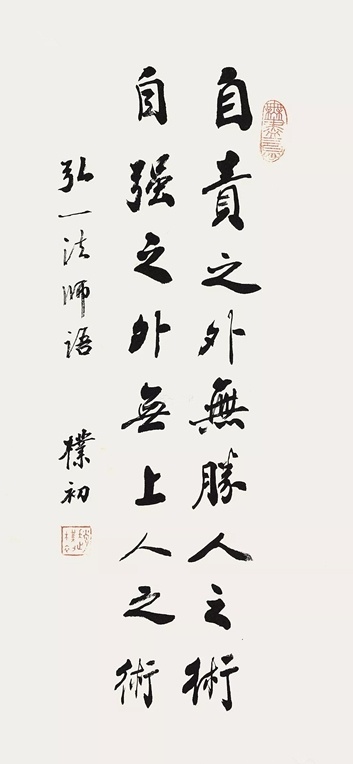 自責之外無勝人之術
自强之外無上人之術
弘一法師語 樸初